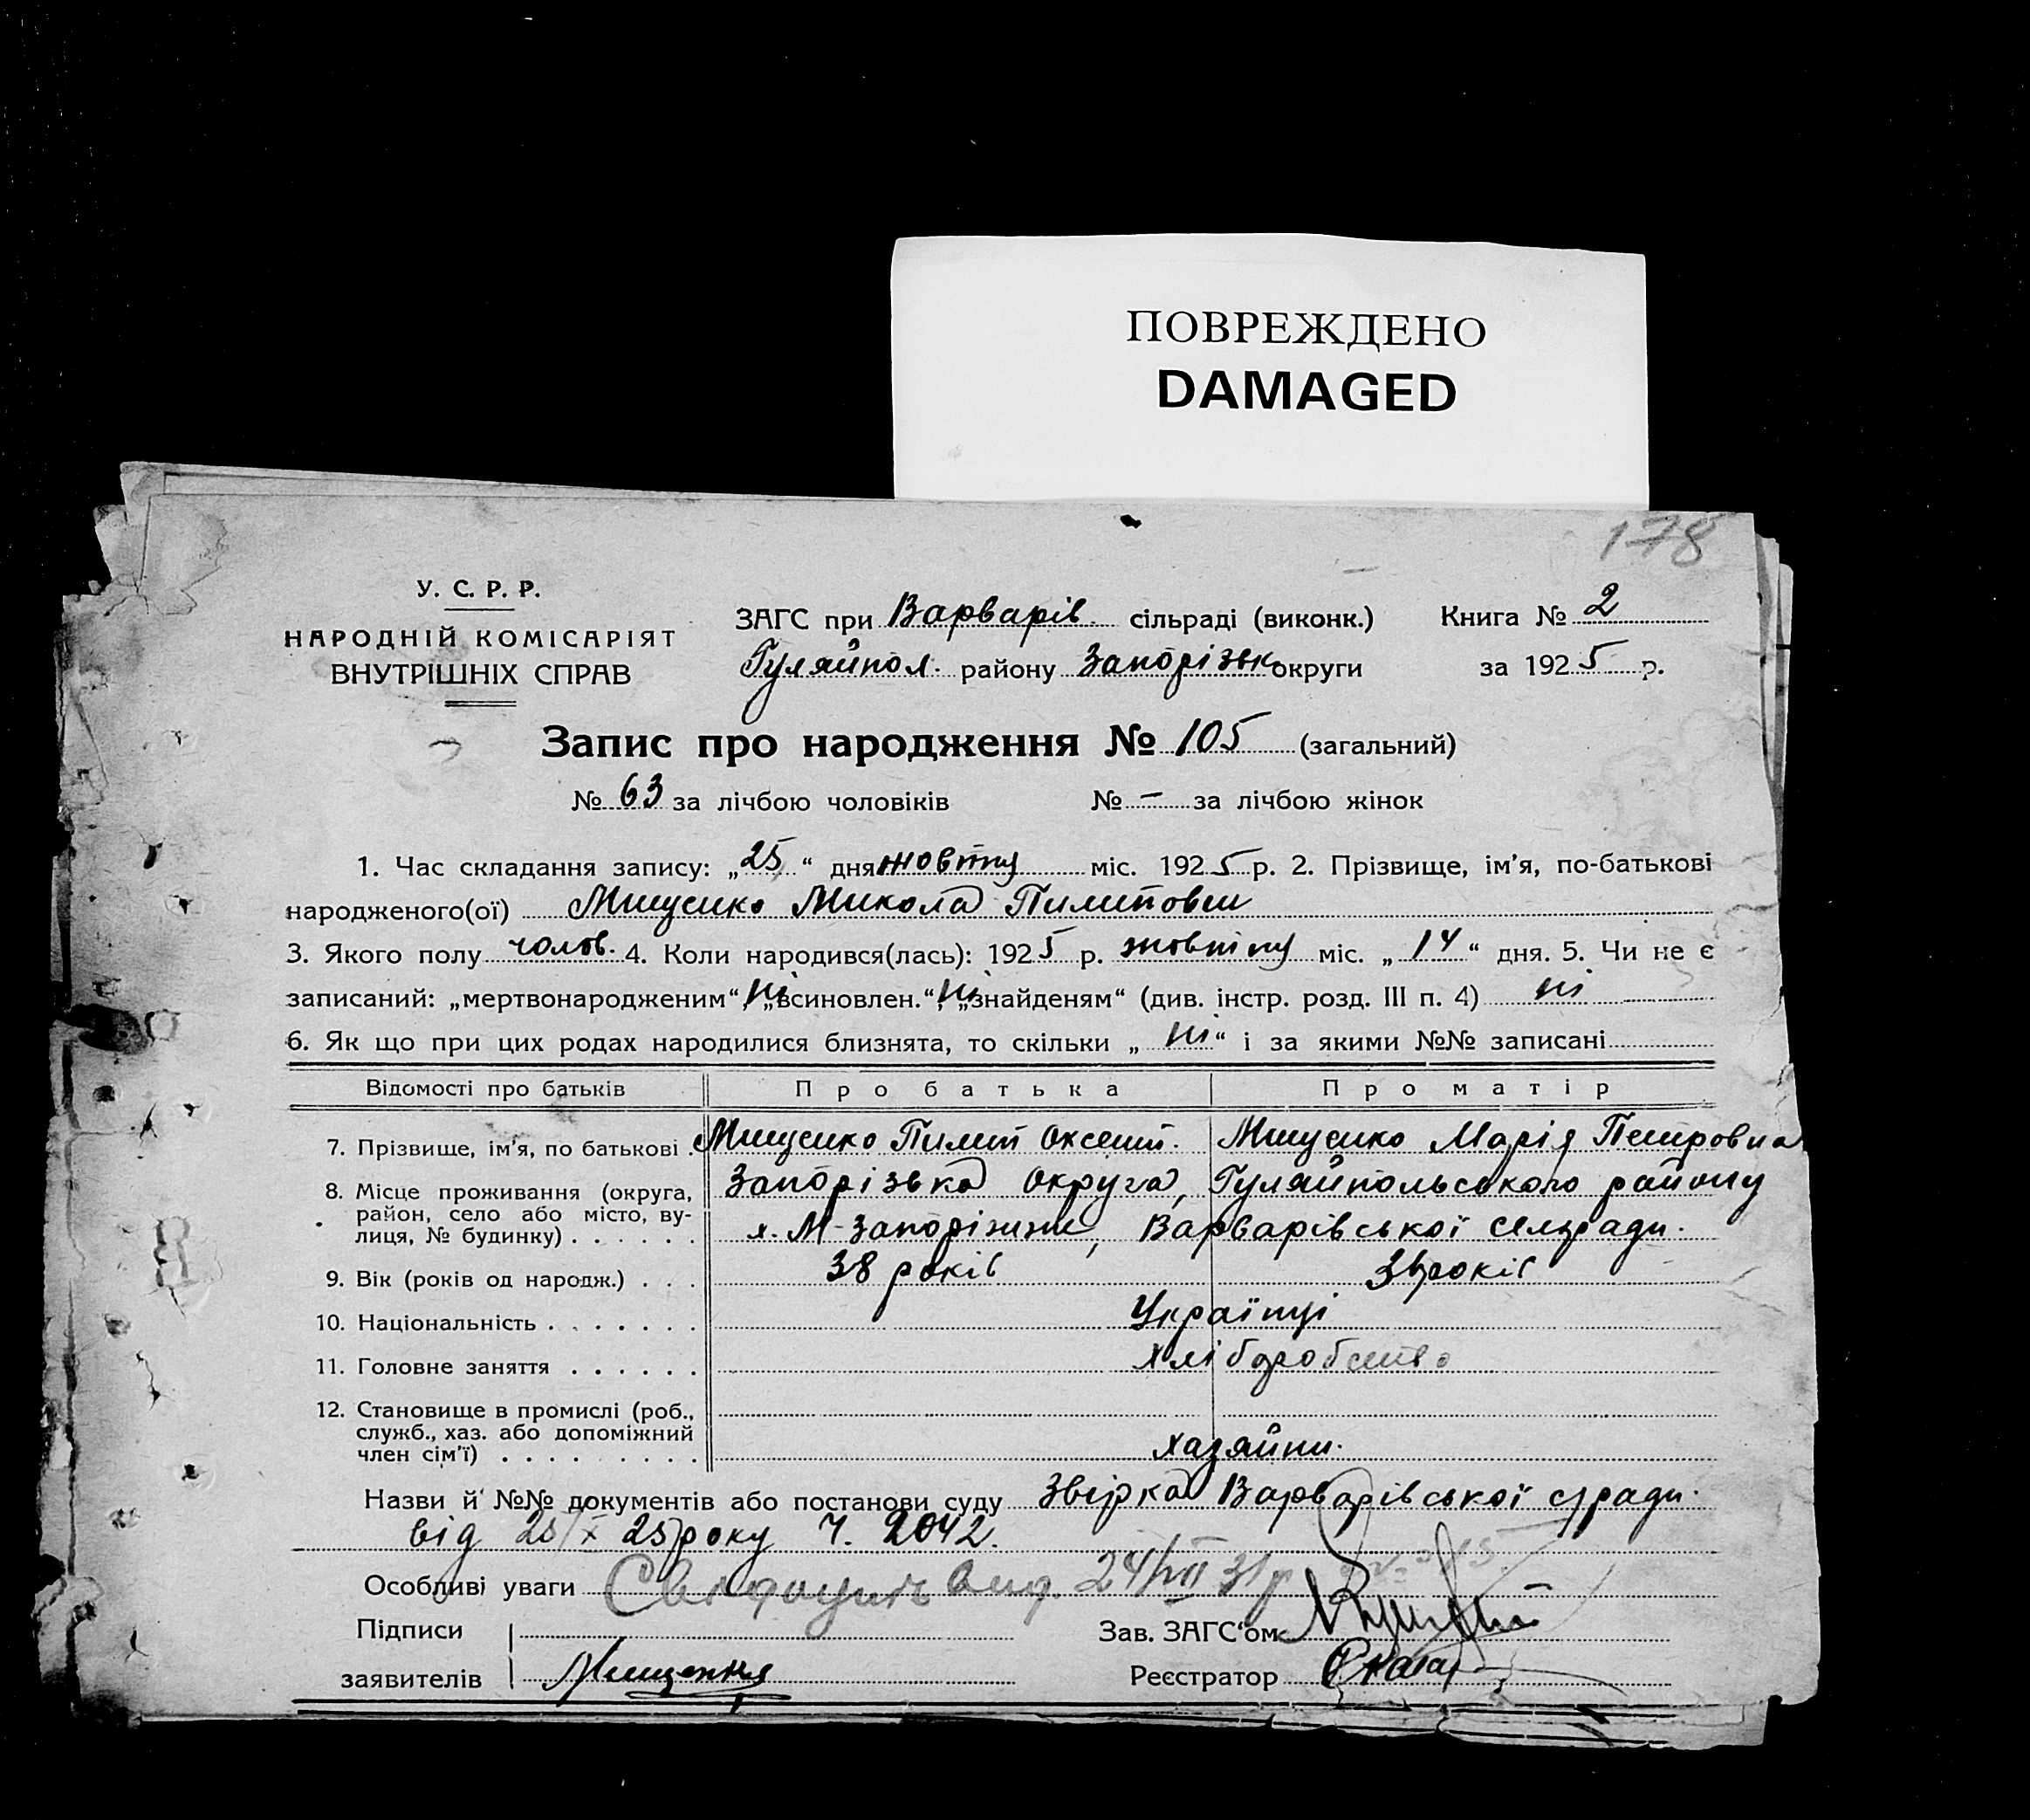 ПОВРЕЖДЕНО
DAMAGED
178
У. С. Р. Р.
НАРОДНІЙ КОМІСАРІЯТ
ВНУТРІШНІХ СПРАВ
ЗАГС при Варварів. сільраді (виконк.) Книга № 2
Гуляйпол. району Запорізьк округи за 1925 р.
Запис про народження № 105 (загальний)
№ 63 за лічбою чоловіків № — за лічбою жінок
1. Час складання запису: „25“ дня жовтну міс. 1925 р. 2. Прізвище, ім'я, по-батькові
народженого(ої) Мищенко Микола Пилипович
3. Якого полу чолов. 4. Коли народився(лась): 1925 р. жовтну міс. „14“ дня. 5. Чи не є
записаний: „мертвонародженим“, ні „всиновлен.“, ні „знайденям“ (див. інстр. розд. III п. 4) ні
6. Як що при цих родах народилися близнята, то скільки „ні“ і за якими №№ записані
Відомості про батьків Про батька Про матір
7. Прізвище, ім'я, по батькові . Мищенко Пилип Оксент. Мищенко Марія Петровна
8. Місце проживання (округа, Запорізька округа, Гуляйпольського району
район, село або місто, ву-
лиця, № будинку) . . . . . . х. М-Запоріжжя, Варварівської сільради.
9. Вік (років од народж.) . . . 38 років років
10. Національність . . . . . . . Українці
11. Головне заняття . . . . . . Хліборобство
12. Становище в промислі (роб.,
служб., хаз. або допоміжний
член сім'ї) . . . . . . . . . хазяйни.
Назви й №№ документів або постанови суду Звірка Варварівської с/ради.
від 25/X 25 року Ч. 2042.
Особливі уваги Свідоцтв вид. 24/VII 31 р
Підписи Зав. ЗАГС'ом
заявителів Мищенко Реєстратор